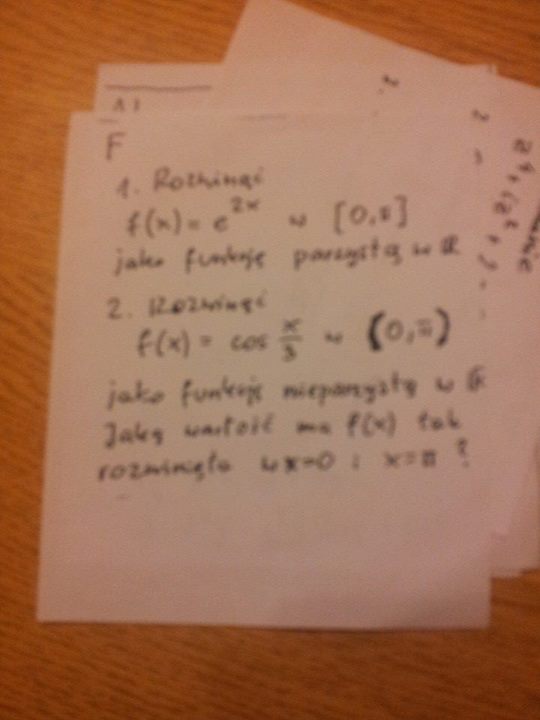 A1
F
1. Rozwinąć
f(x) = e^{2x} w [0,π]
jako funkcję parzystą w ℝ
2. Rozwinąć
f(x) = cos x/3 w (0,π)
jako funkcję nieparzystą w ℝ
Jaką wartość ma f(x) tak
rozwinięta w x=0 i x=π ?